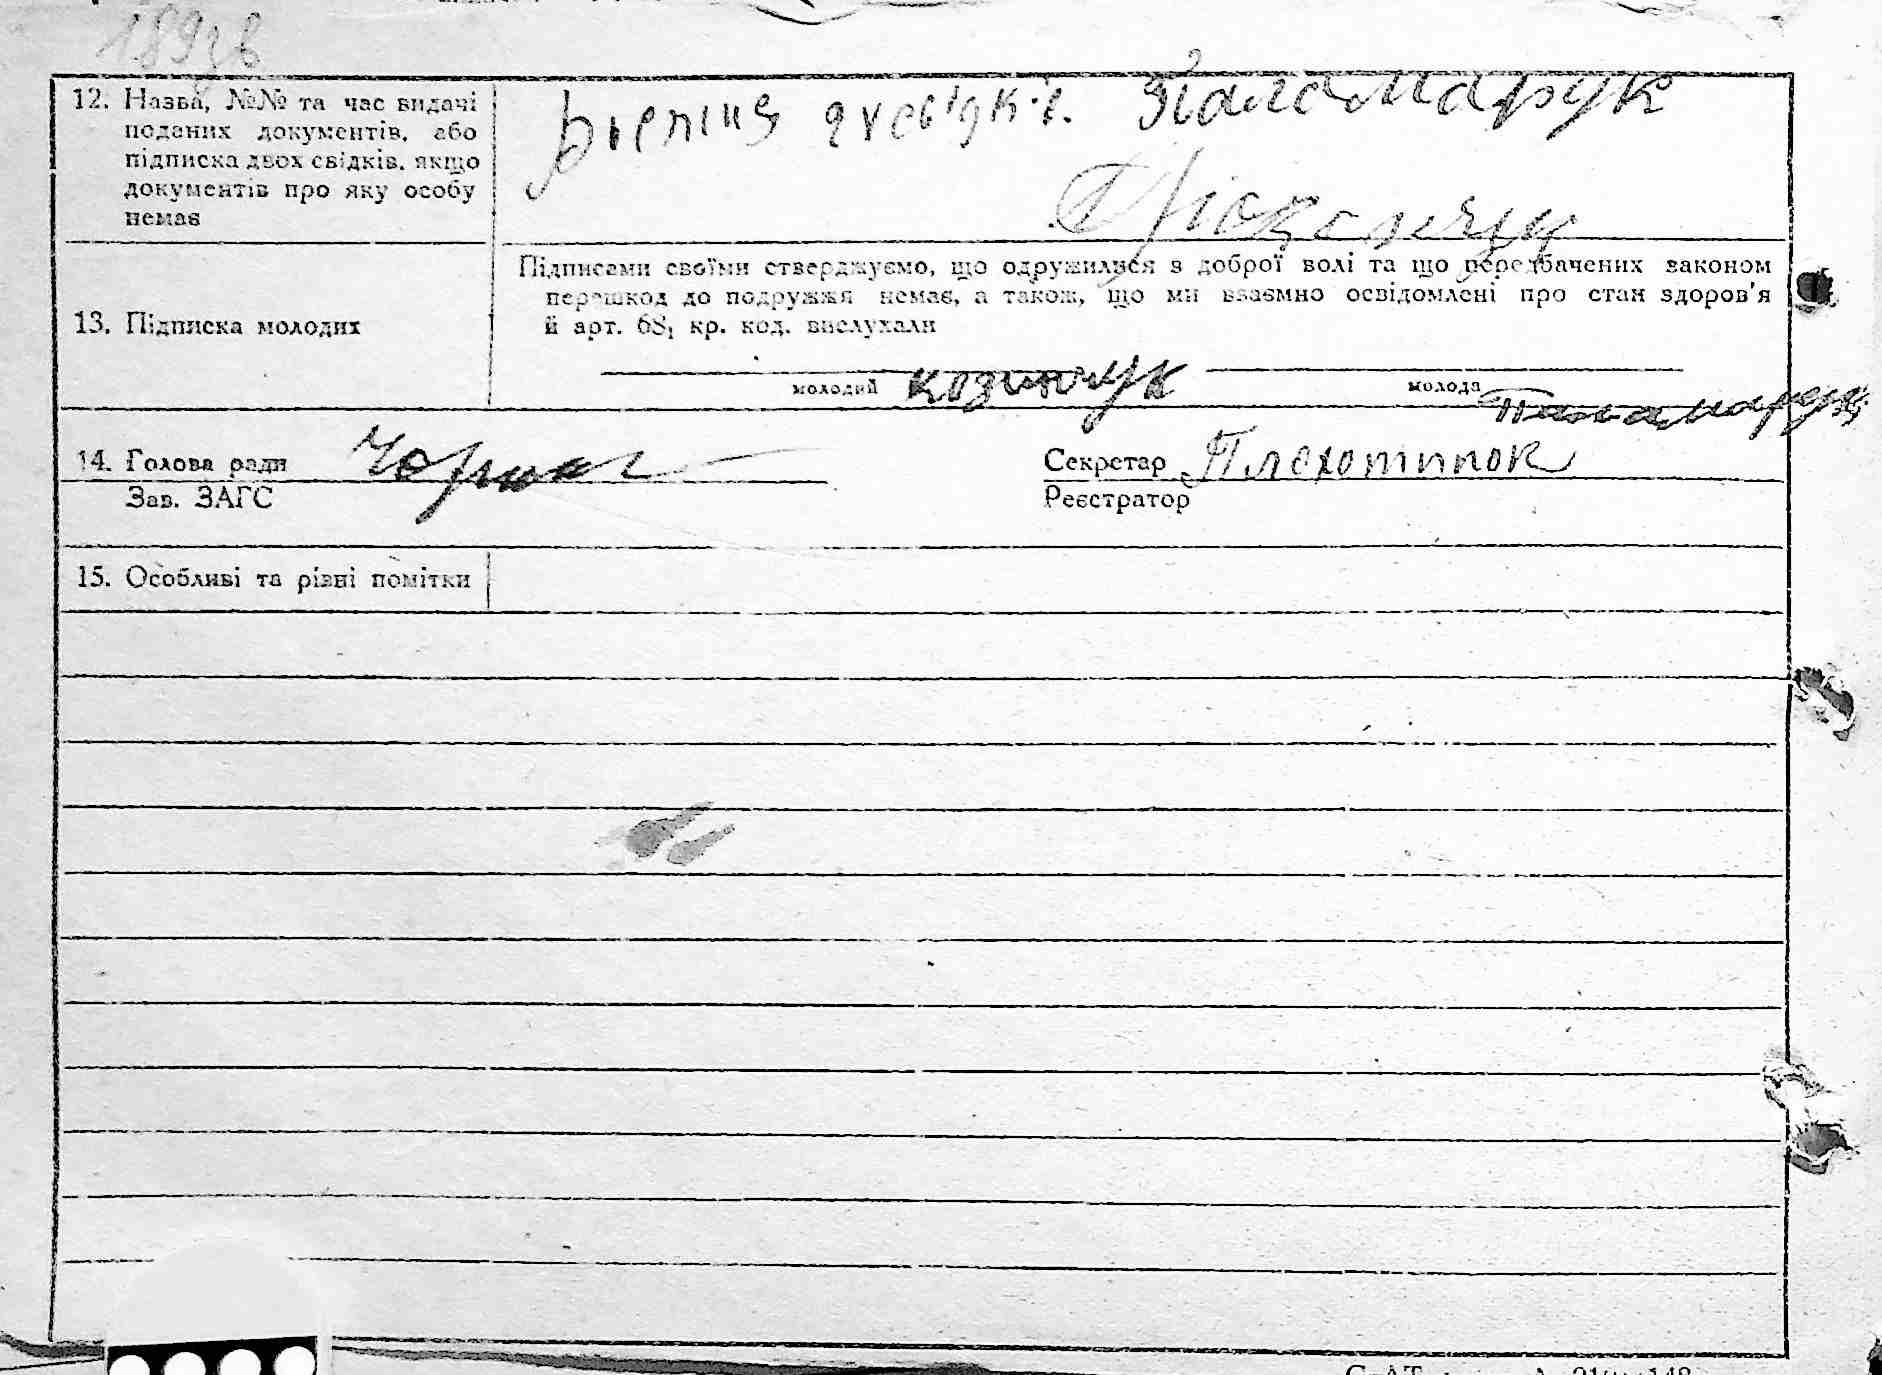 189зв
12. Назва, №№ та час видачі
поданих документів, або
підписка двох свідків, якщо
документів про яку особу
немає
Паламарук
Підписами своїми стверджуємо, що одружилися з доброї волі та що передбачених законом
перешкод до подружжя немає, а також, що ми взаємно освідомлені про стан здоров'я
й арт. 68, кр. код. вислухали
13. Підписка молодих
молодий Козинчук молода Паламарук
14. Голова ради Секретар Плехотнюк
Зав. ЗАГС Реєстратор
15. Особливі та різні помітки